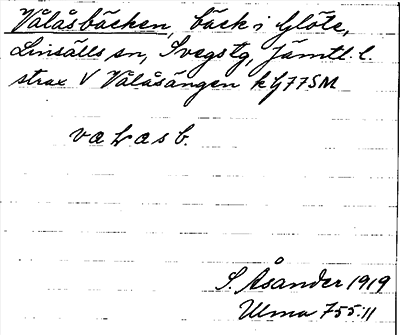 Vålåsbäcken, bäck i Glöte,
Linsälls sn, Svegs tg, Jämtl. l.
strax V Vålåsängen k G77SM
S. Åsander 1919
Ulma 755:11